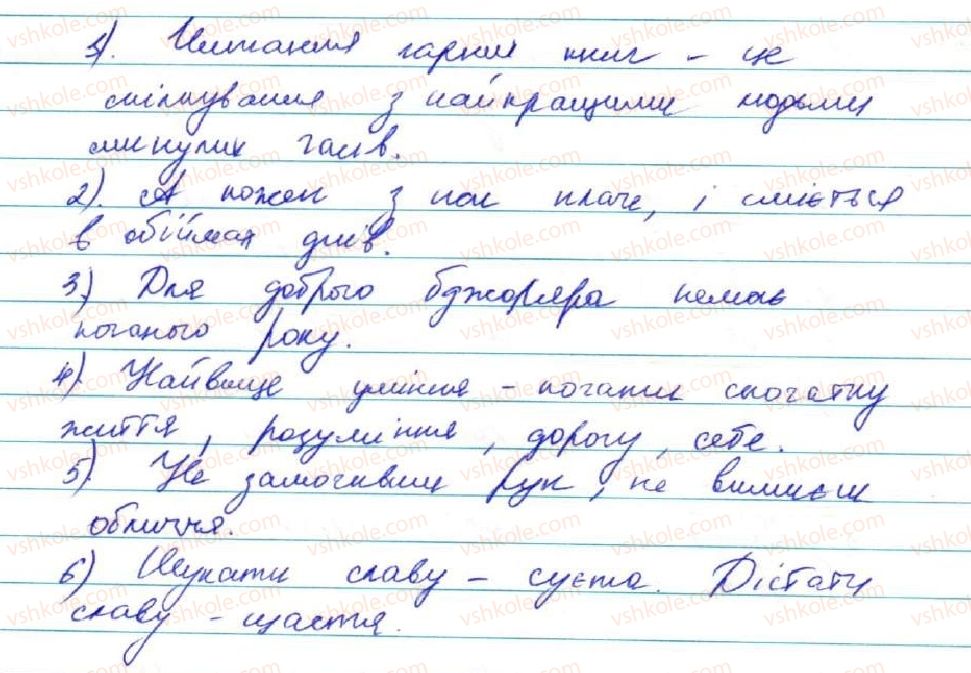 1). Читання гарних книг – це
спілкування з найкращими людьми
минулих часів.
2). А кожен з нас плаче, і сміється
в обіймах днів.
3) Для доброго бджоляра немає
поганого року.
4). Найвище уміння – почати спочатку
життя, розуміння, дорогу, себе.
5). Не замочивши рук, не вимиєш
обличчя.
6) Шукати славу – суєта. Дістати
славу – щастя.
vshkole.com